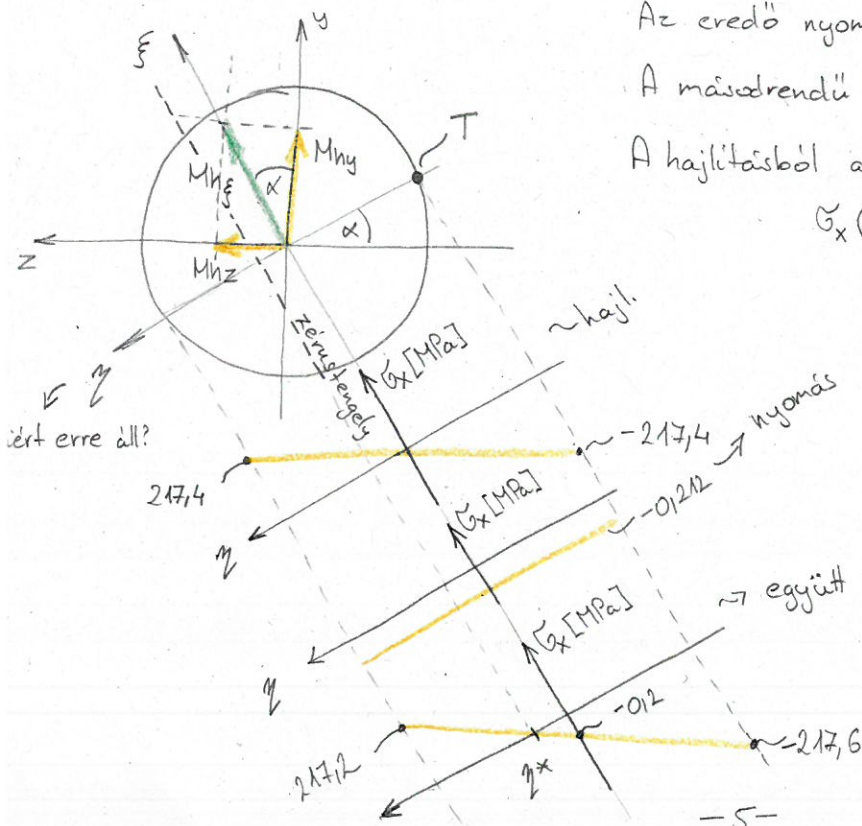 Az eredő nyom
A másodrendű
A hajlításból a
σx(
ξ
y
T
Mhξ
α
Mhy
α
z
Mhz
zérustengely
η
iért erre áll?
σx[MPa]
~hajl.
217,4
-217,4
η
σx[MPa]
nyomás
-0,212
η
σx[MPa]
együtt
-0,2
217,2
η*
-217,6
-5-